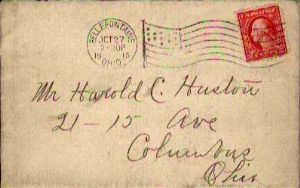 BELLEFONTAINE
OCT 27
2-30P
1915
OHIO
Mr Harold C. Huston
21-15 Ave
Columbus
Ohio